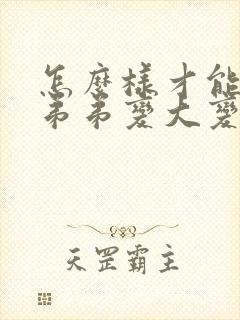 怎麼樣才能
弟弟變大變
天罡霸主